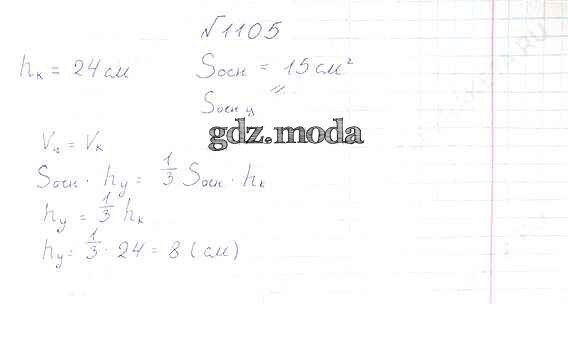 №1105
hк = 24 см Sосн = 15 см²
Sосн ц
gdz.moda
Vц = Vк
Sосн · hц = 1/3 Sосн · hк
hц = 1/3 hк
hц = 1/3 · 24 = 8 (см)